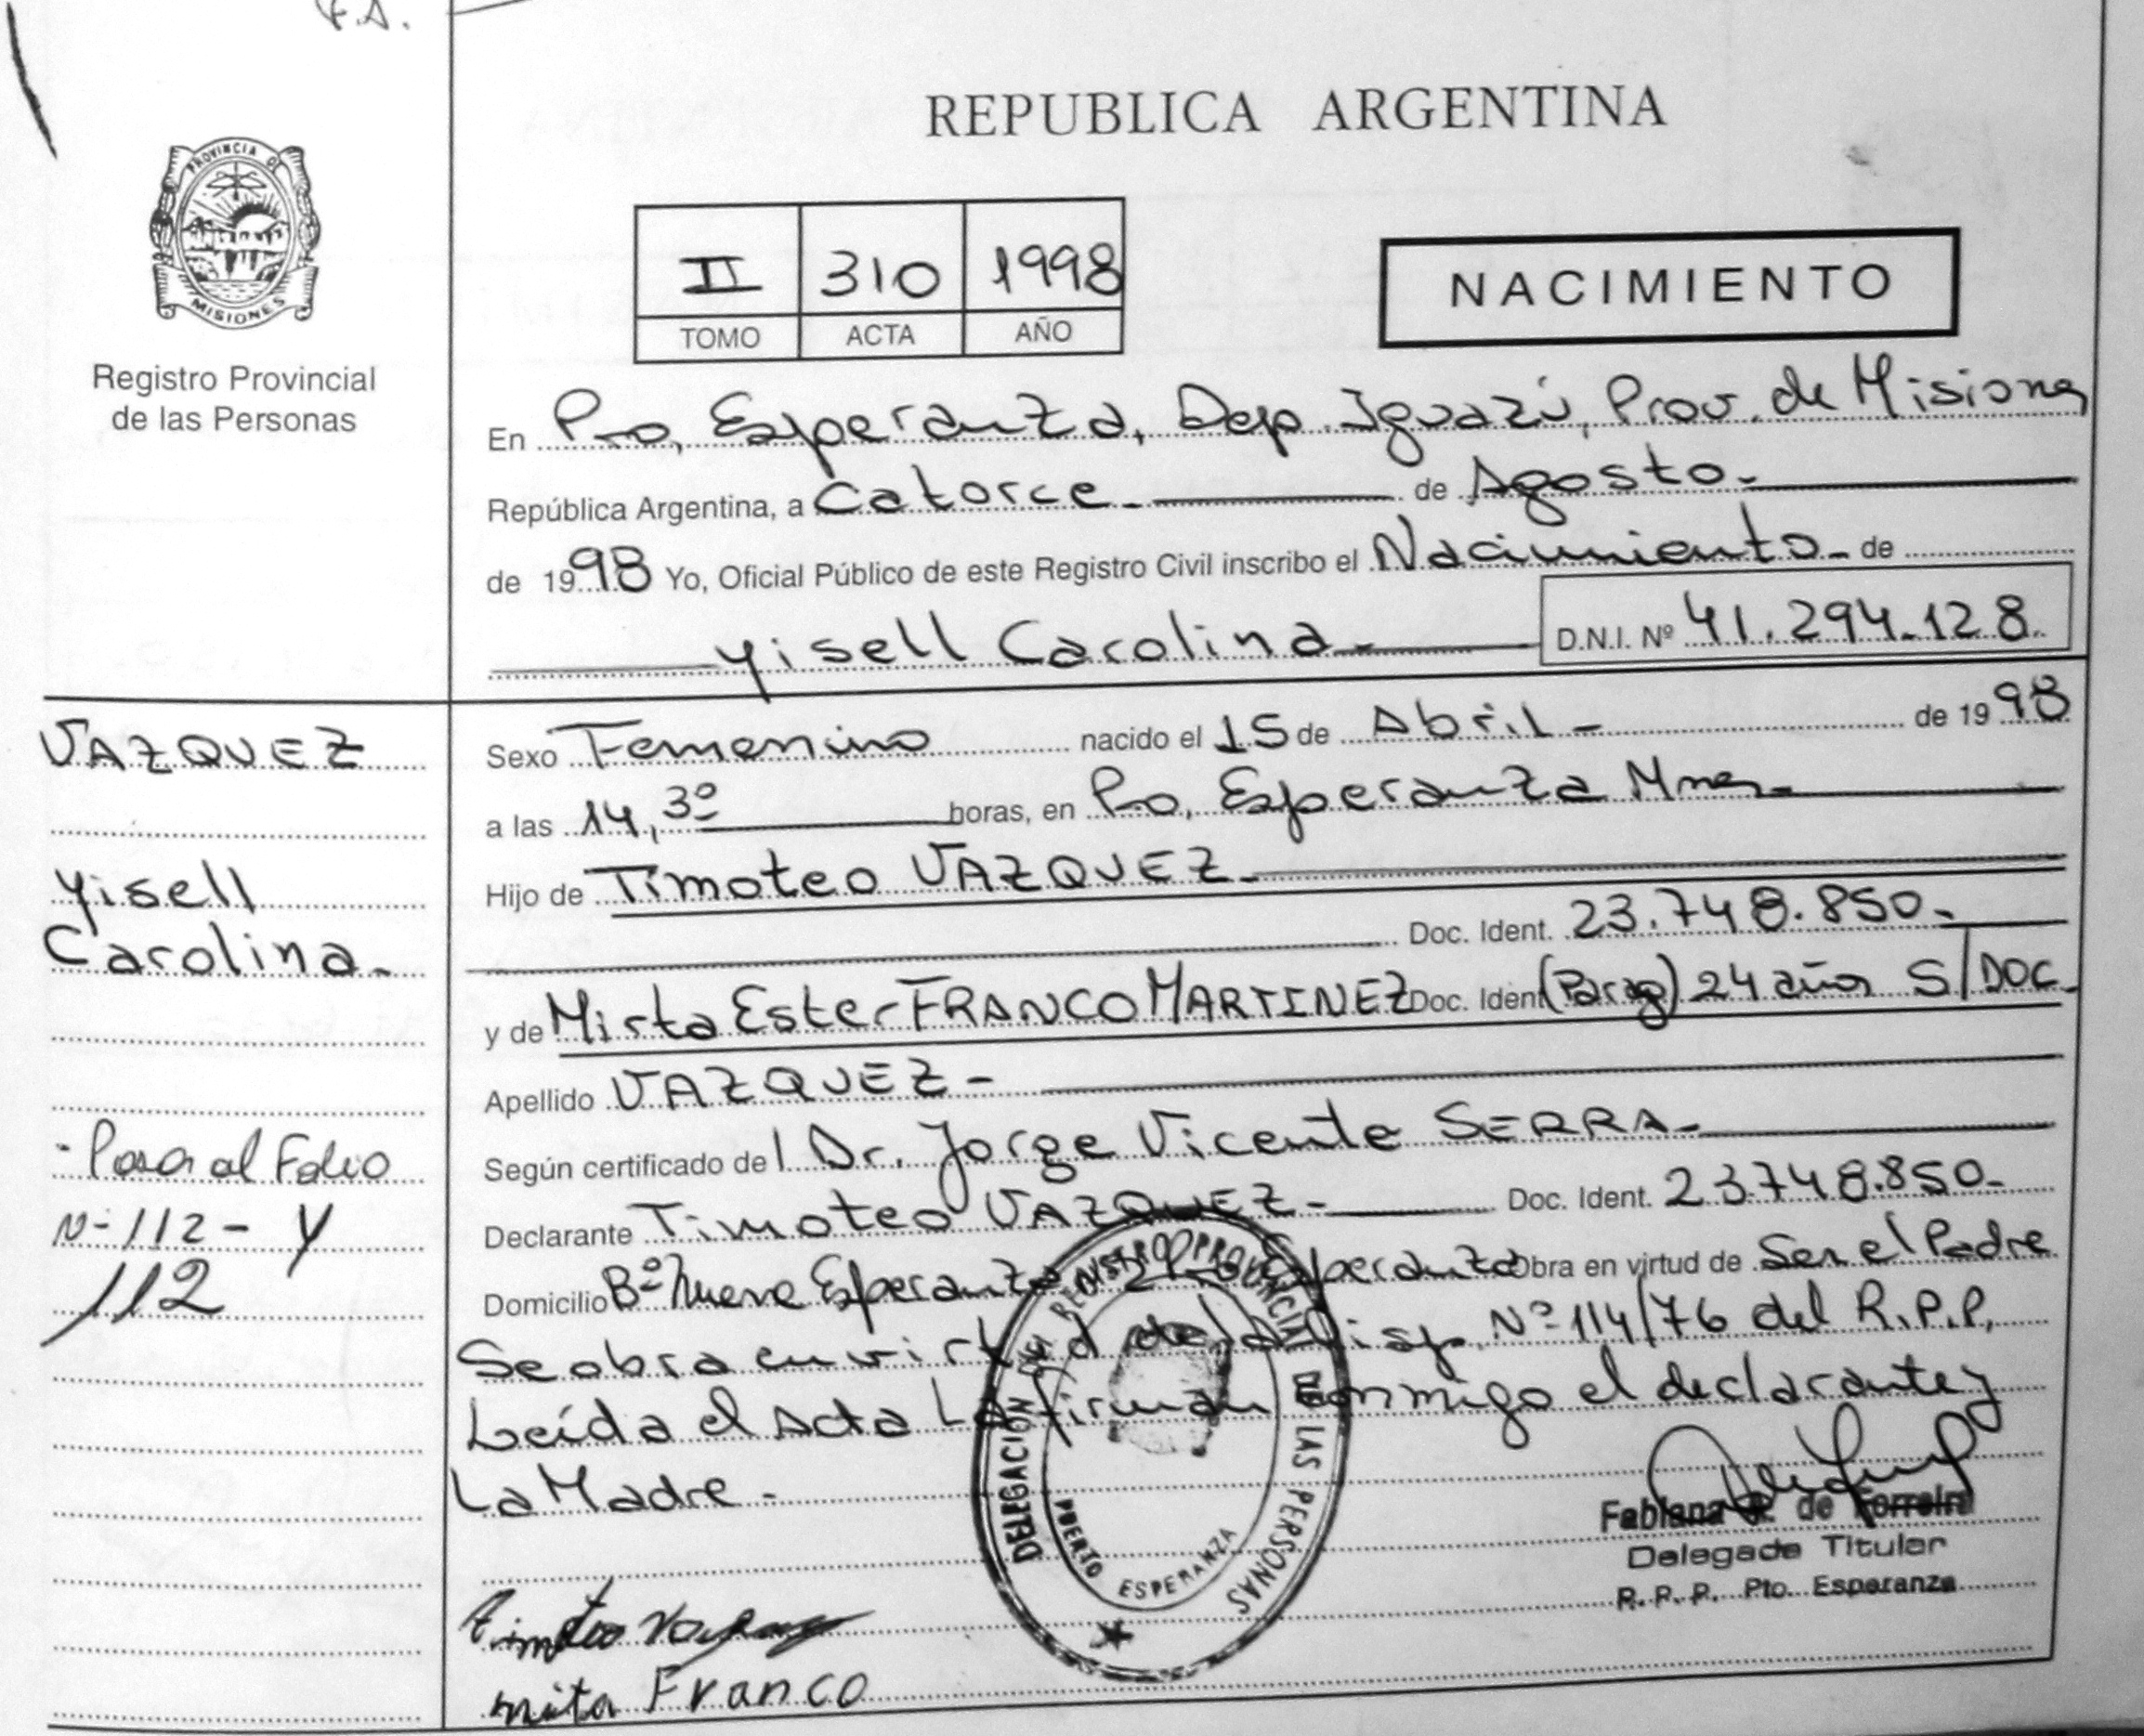 F.A.
REPUBLICA ARGENTINA
PROVINCIA DE
MISIONES
Registro Provincial
de las Personas
II 310 1998
TOMO ACTA AÑO
NACIMIENTO
En Pto, Esperanza, Dep. Iguazú, Prov. de Misiones
República Argentina, a Catorce.- de Agosto.-
de 1998 Yo, Oficial Público de este Registro Civil inscribo el Nacimiento - de
Yisell Carolina.- D.N.I. Nº 41.294.128.
VAZQUEZ
Yisell
Carolina.-
- Pasa al Folio
Nº 112 - Y
112
Sexo Femenino nacido el 15 de Abril - de 1998
a las 14,30 horas, en Pto, Esperanza Mnes.-
Hijo de Timoteo VAZQUEZ.-
Doc. Ident. 23.748.850.-
y de Mirta Ester FRANCO MARTINEZ Doc. Ident (Parag) 24 años S/DOC.-
Apellido VAZQUEZ -
Según certificado del Dr. Jorge Vicente SERRA.-
Declarante Timoteo VAZQUEZ.- Doc. Ident. 23.748.850.-
Domicilio Bº Nueva Esperanza Pto Esperanza Obra en virtud de Ser el Padre
Se obra en virtud de la Disp. Nº 114/76 del R.P.P.
Leída el Acta La firman conmigo el declarante y
La Madre.-
DELEGACION DEL REGISTRO PROVINCIAL DE LAS PERSONAS
PUERTO ESPERANZA
Fabiana de Ferreira
Delegada Titular
R. P. P. Pto. Esperanza
timoteo Vazquez
mirta Franco